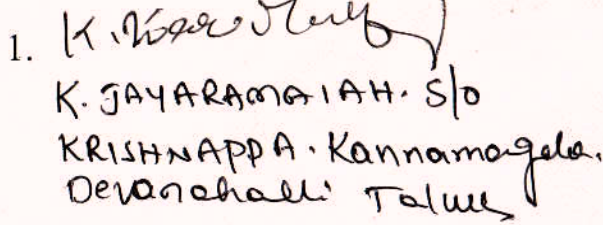 1. K.
K. JAYARAMAIAH. S/O
KRISHNAPPA. Kannamangala.
Devanahalli Taluk